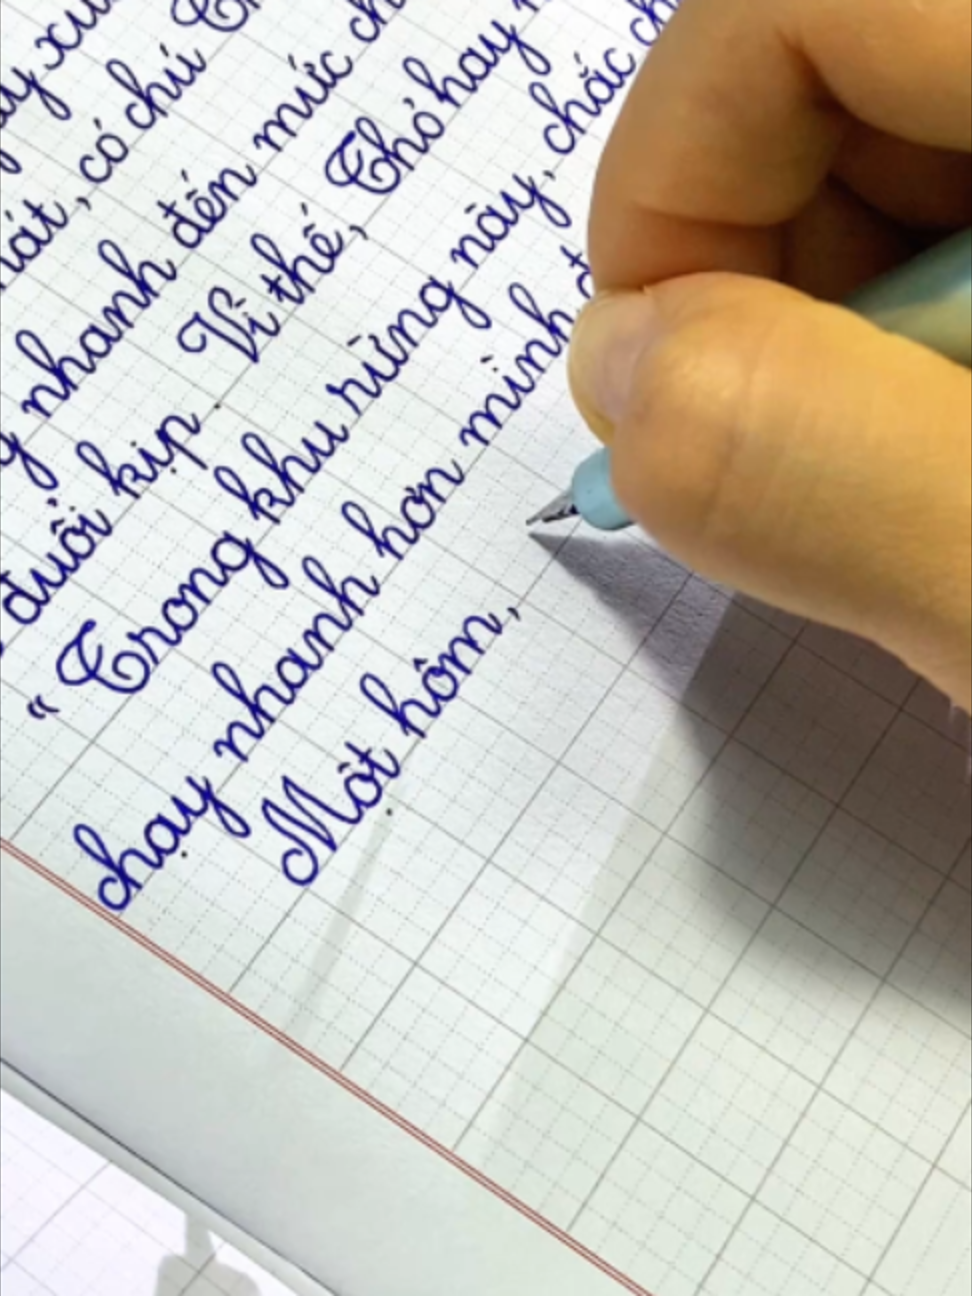 có chú
nhanh đến mức
đuôi kịp. Vì thế, Thỏ hay
"Trong khu rừng này, chắc
chạy nhanh hơn mình
Một hôm,